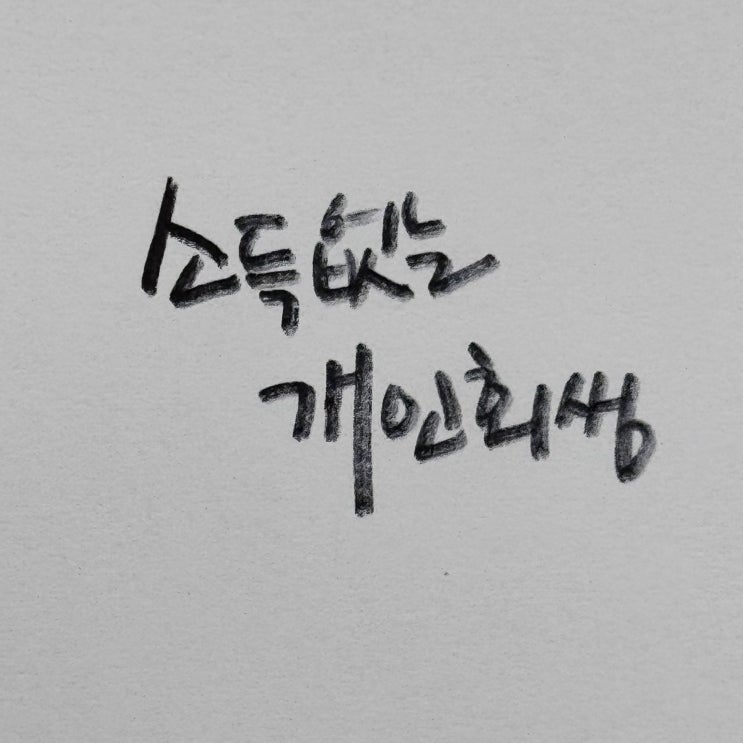 소득없는
개인회생